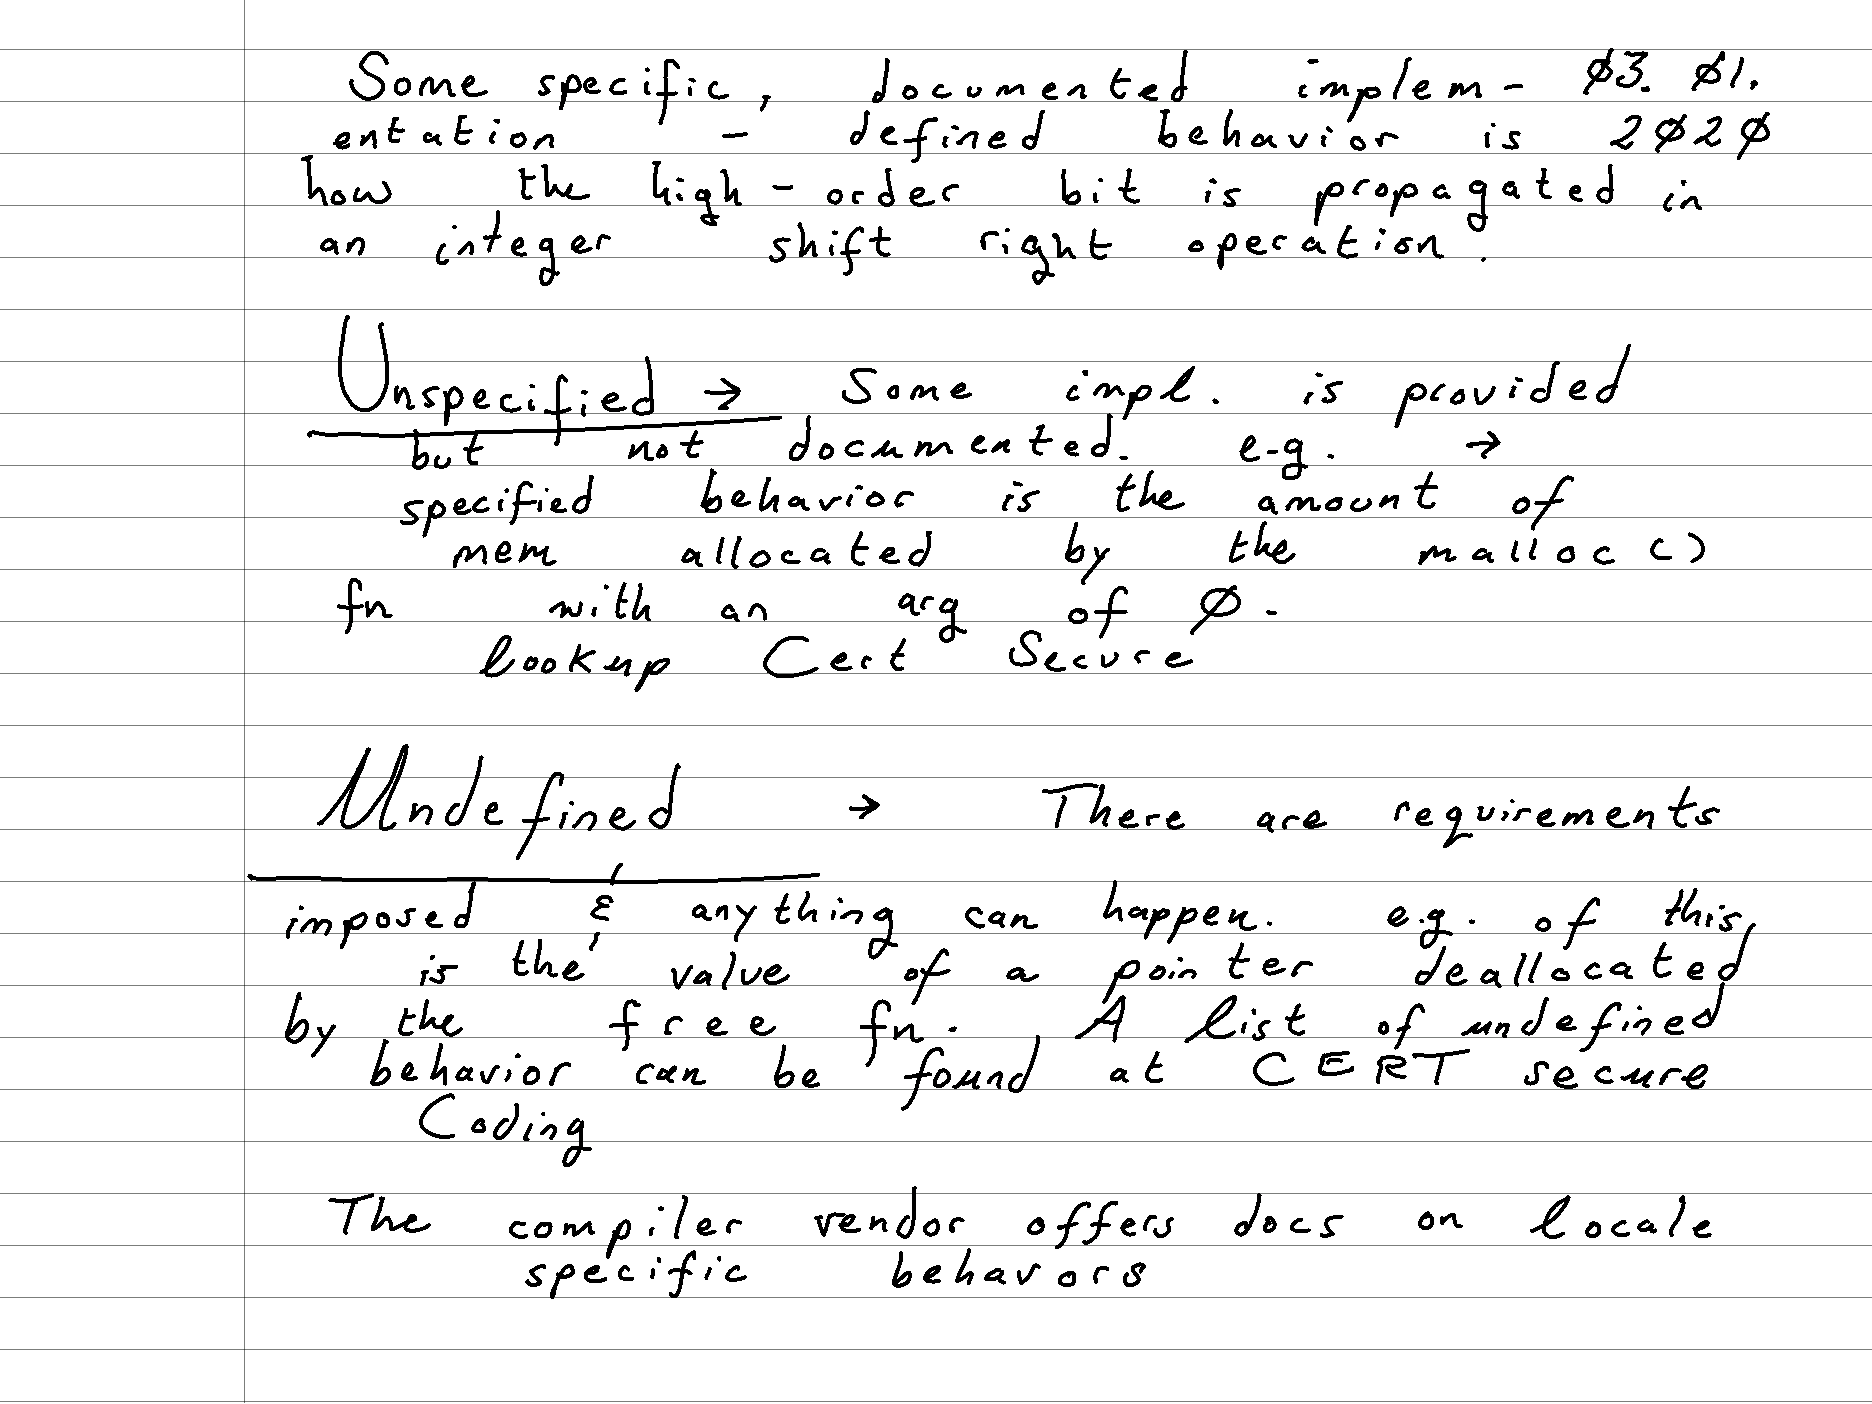 Some specific, documented implem- Ø3. Ø1.
entation - defined behavior is 2Ø2Ø
how the high-order bit is propagated in
an integer shift right operation.
Unspecified → Some impl. is provided
but not documented. e.g. →
specified behavior is the amount of
mem allocated by the malloc ()
fn with an arg of Ø.
lookup Cert Secure
Undefined → There are requirements
imposed & anything can happen. e.g. of this,
is the value of a pointer deallocated
by the free fn. A list of undefined
behavior can be found at CERT secure
Coding
The compiler vendor offers docs on locale
specific behavors